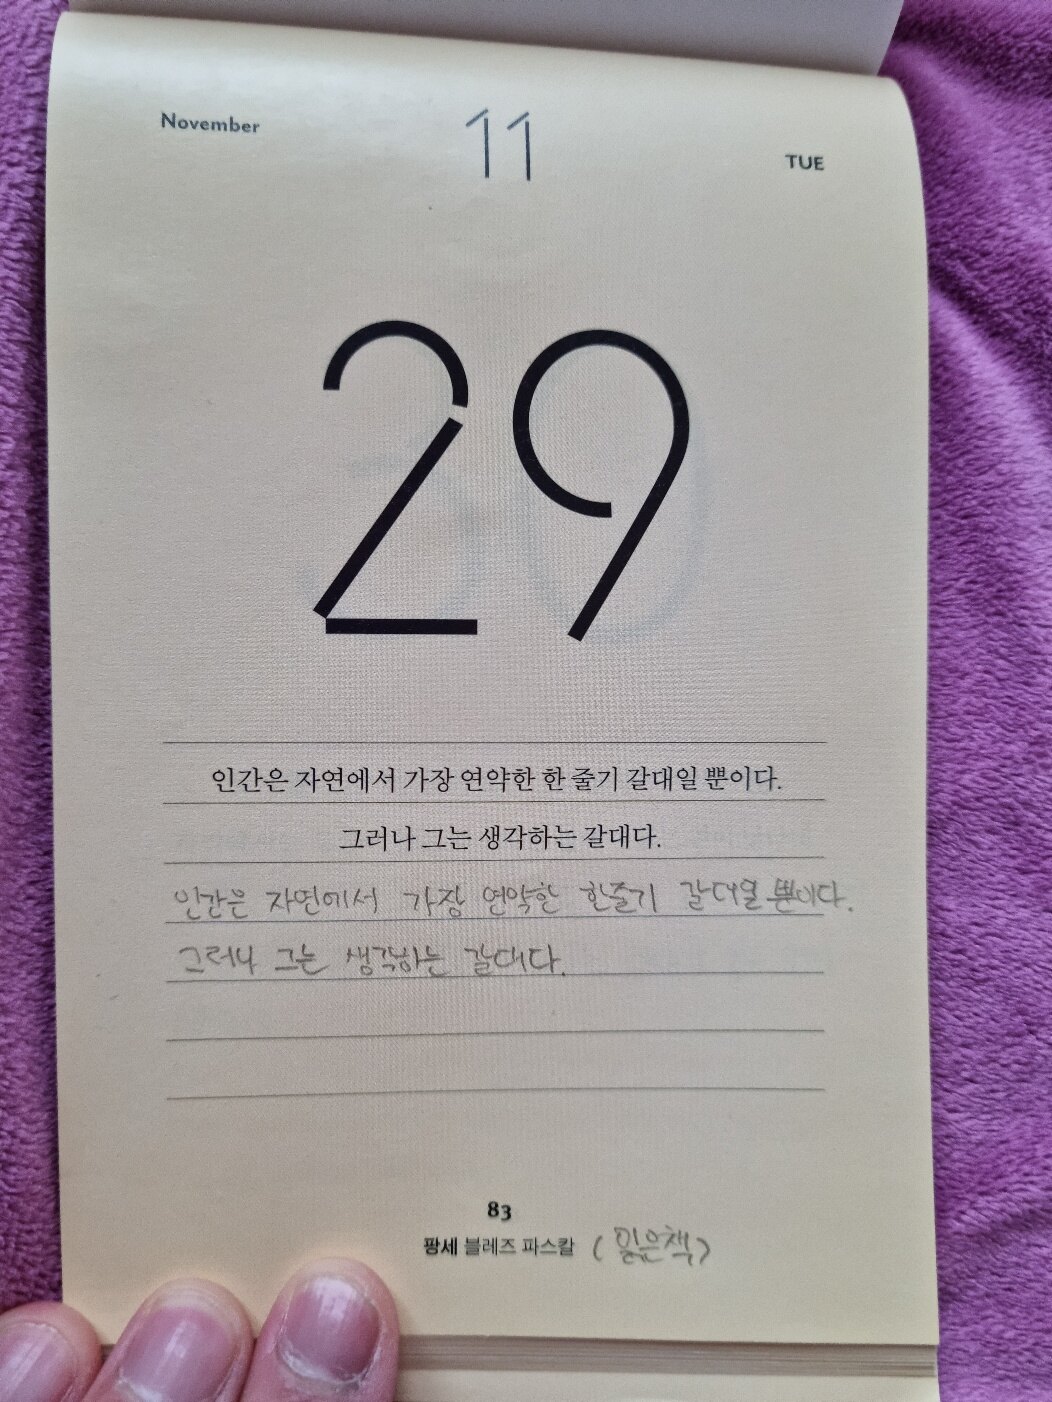 November
11
TUE
29
인간은 자연에서 가장 연약한 한 줄기 갈대일 뿐이다.
그러나 그는 생각하는 갈대다.
인간은 자연에서 가장 연약한 한줄기 갈대일 뿐이다.
그러나 그는 생각하는 갈대다.
83
팡세 블레즈 파스칼 (읽은책)